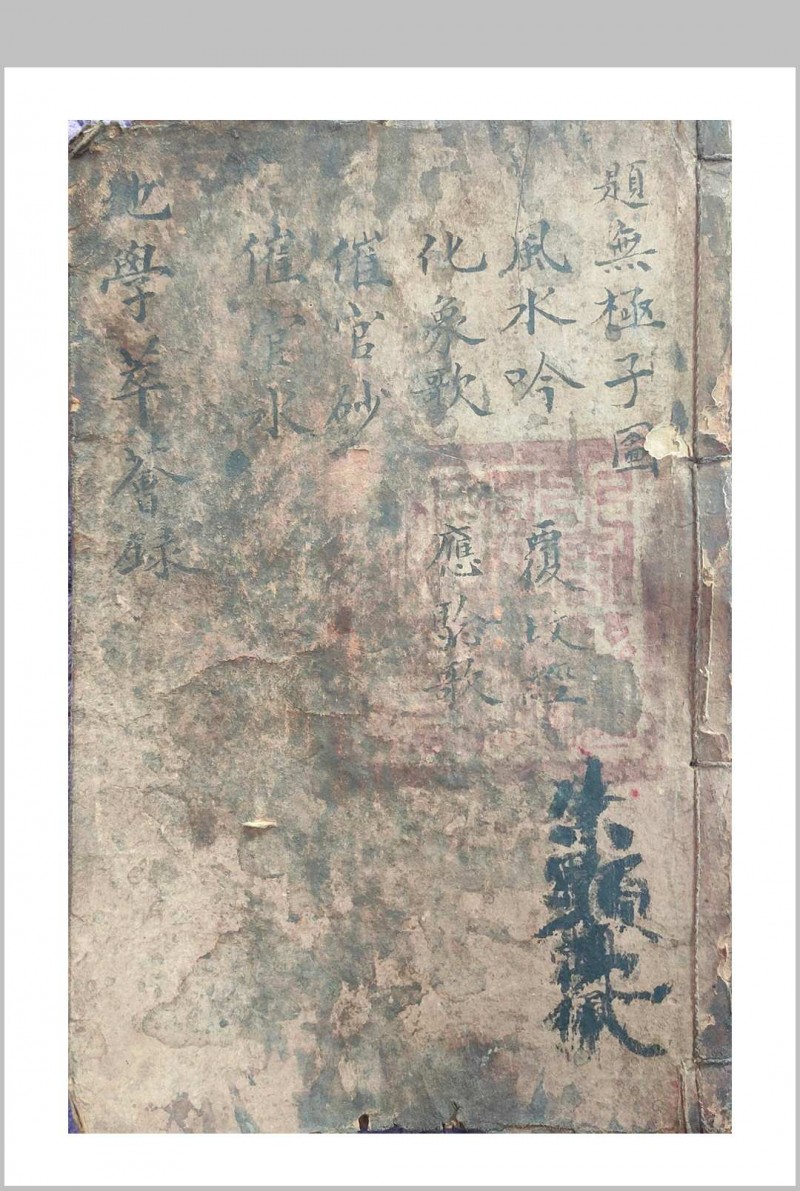 題無極子圖
風水吟
覆坟經
化象歌
應驗歌
催官砂
催官水
地學萃薈錄